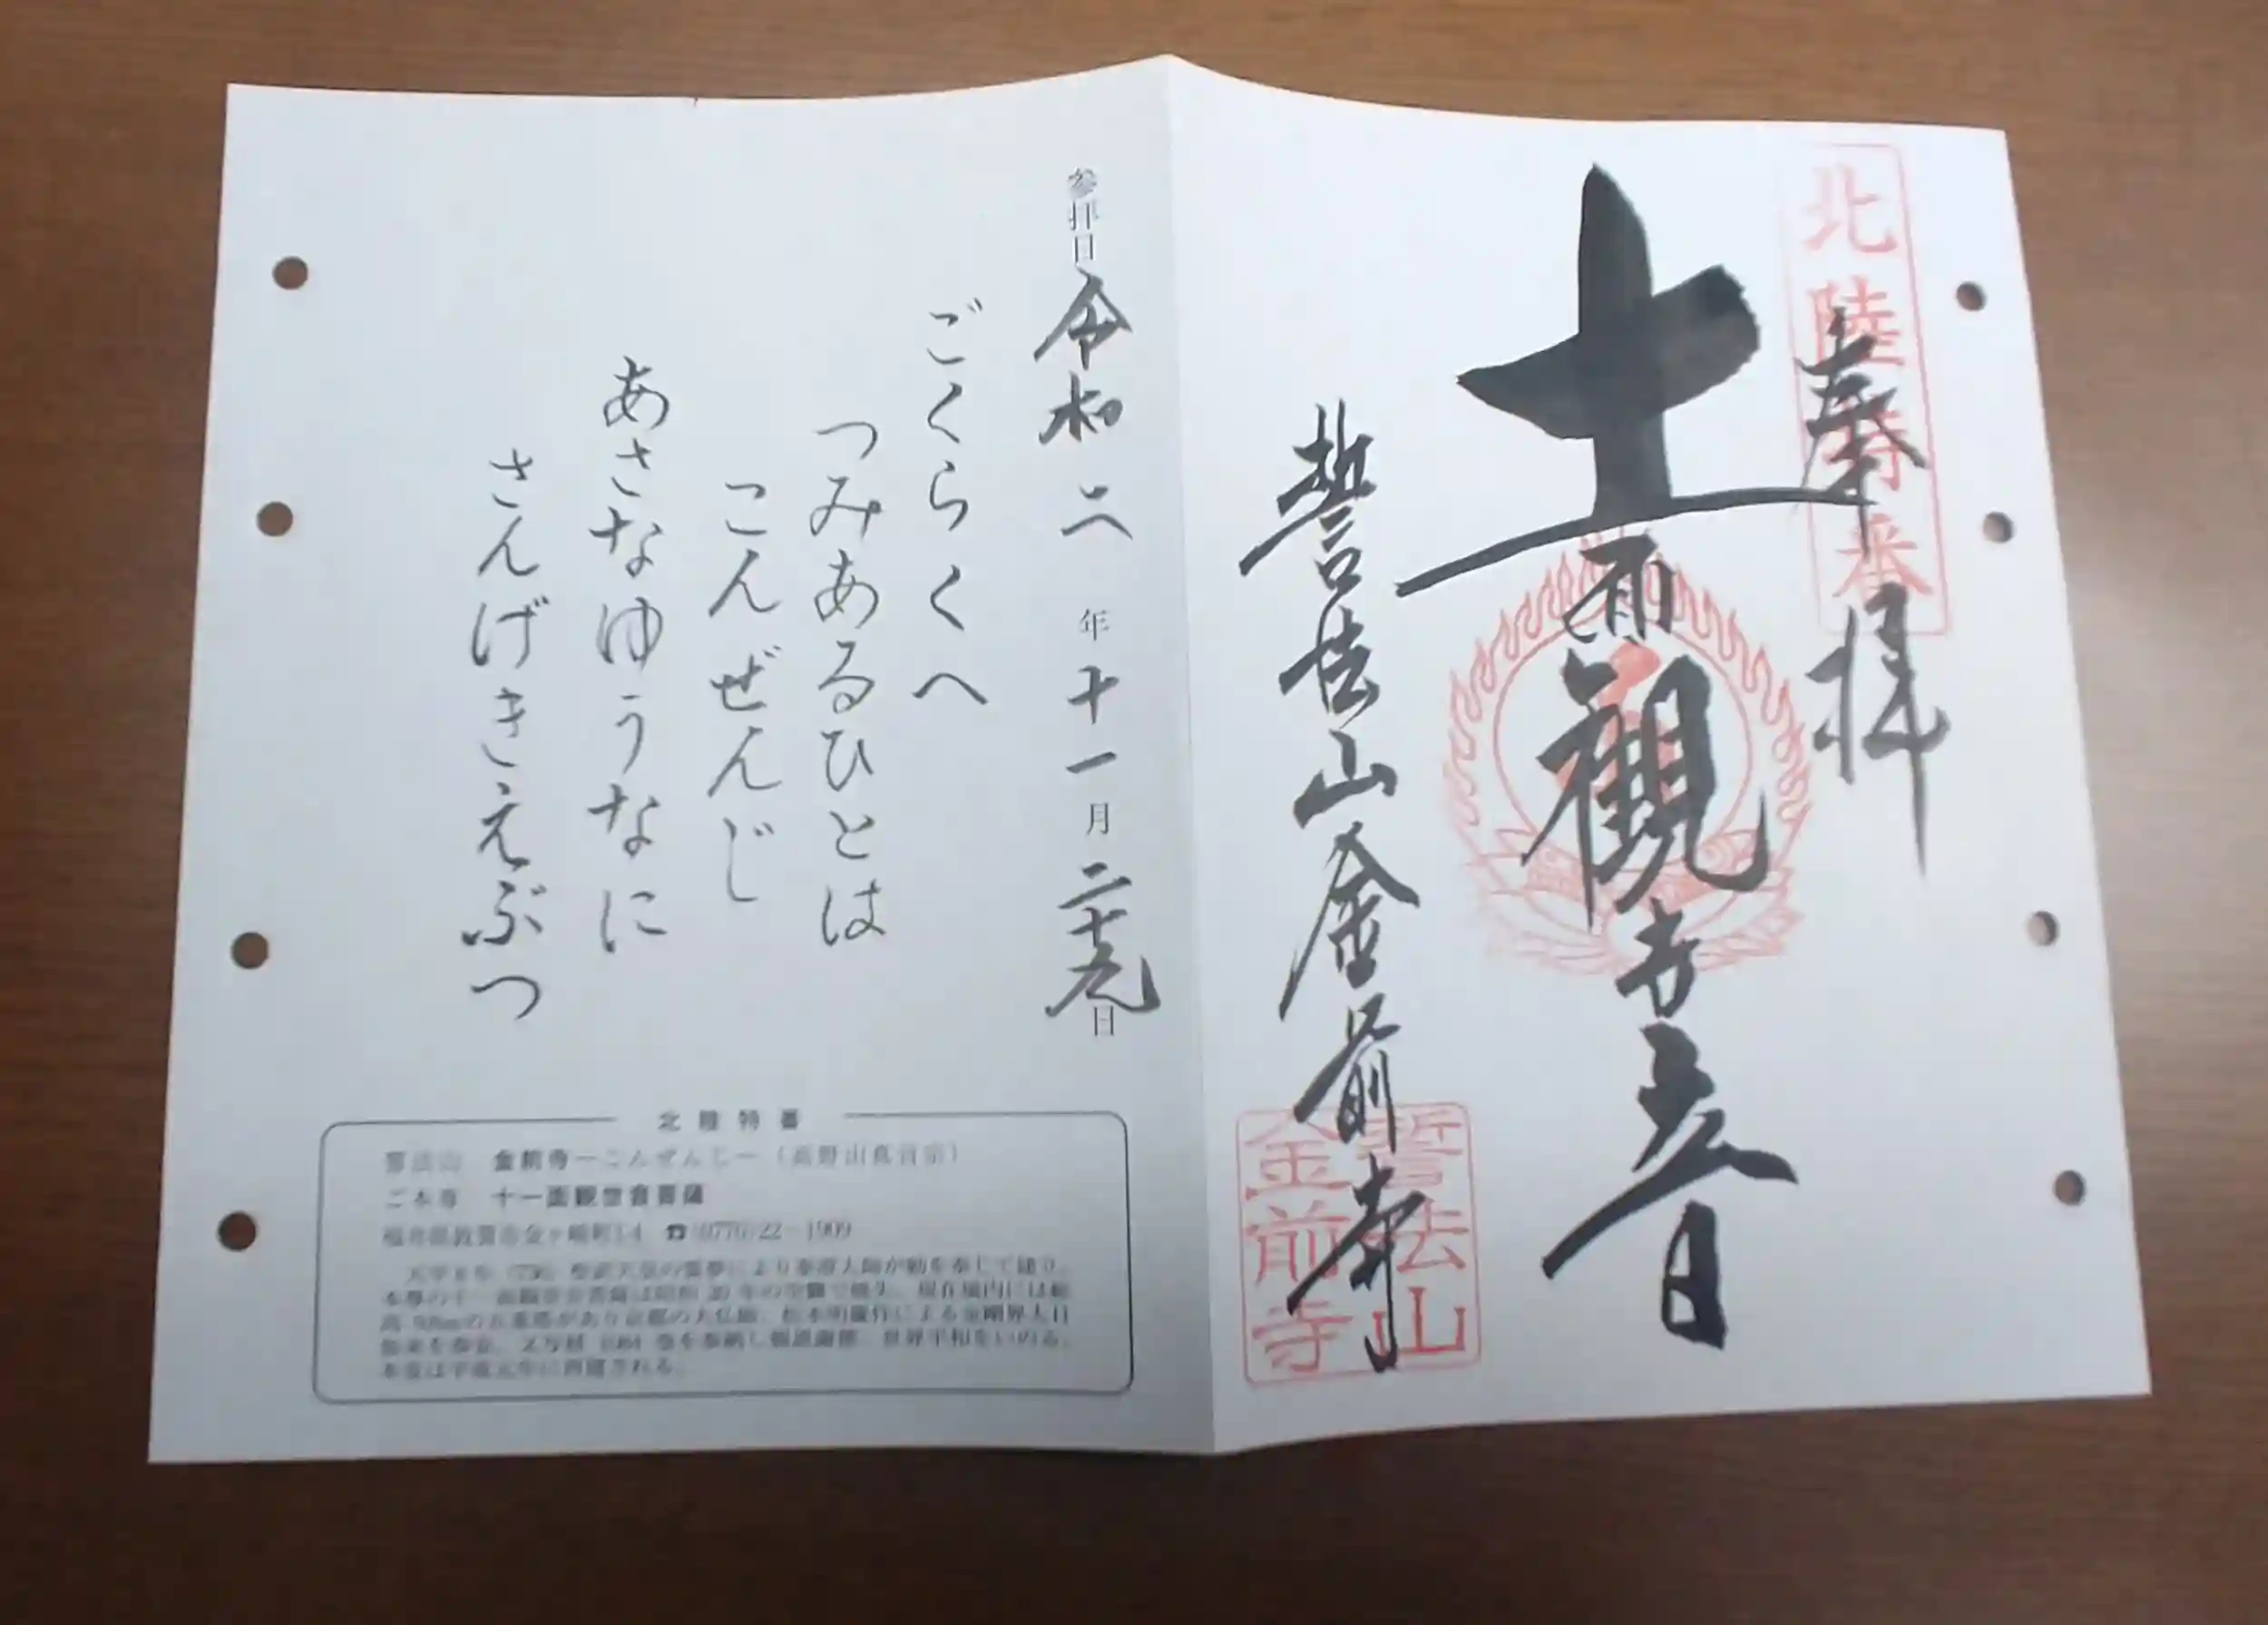 北陸特番
奉拝
十一面観世音
誓法山金前寺
誓法山
金前寺
参拝日 令和二年十一月二十九日
ごくらくへ
つみあるひとは
こんぜんじ
あさなゆうなに
さんげきえぶつ
北陸特番
誓法山 金前寺―こんぜんじ―(高野山真言宗)
ご本尊 十一面観世音菩薩
福井県敦賀市金ヶ崎町1-4 ☎(0770)22-1909
本堂は平成元年に再建される。